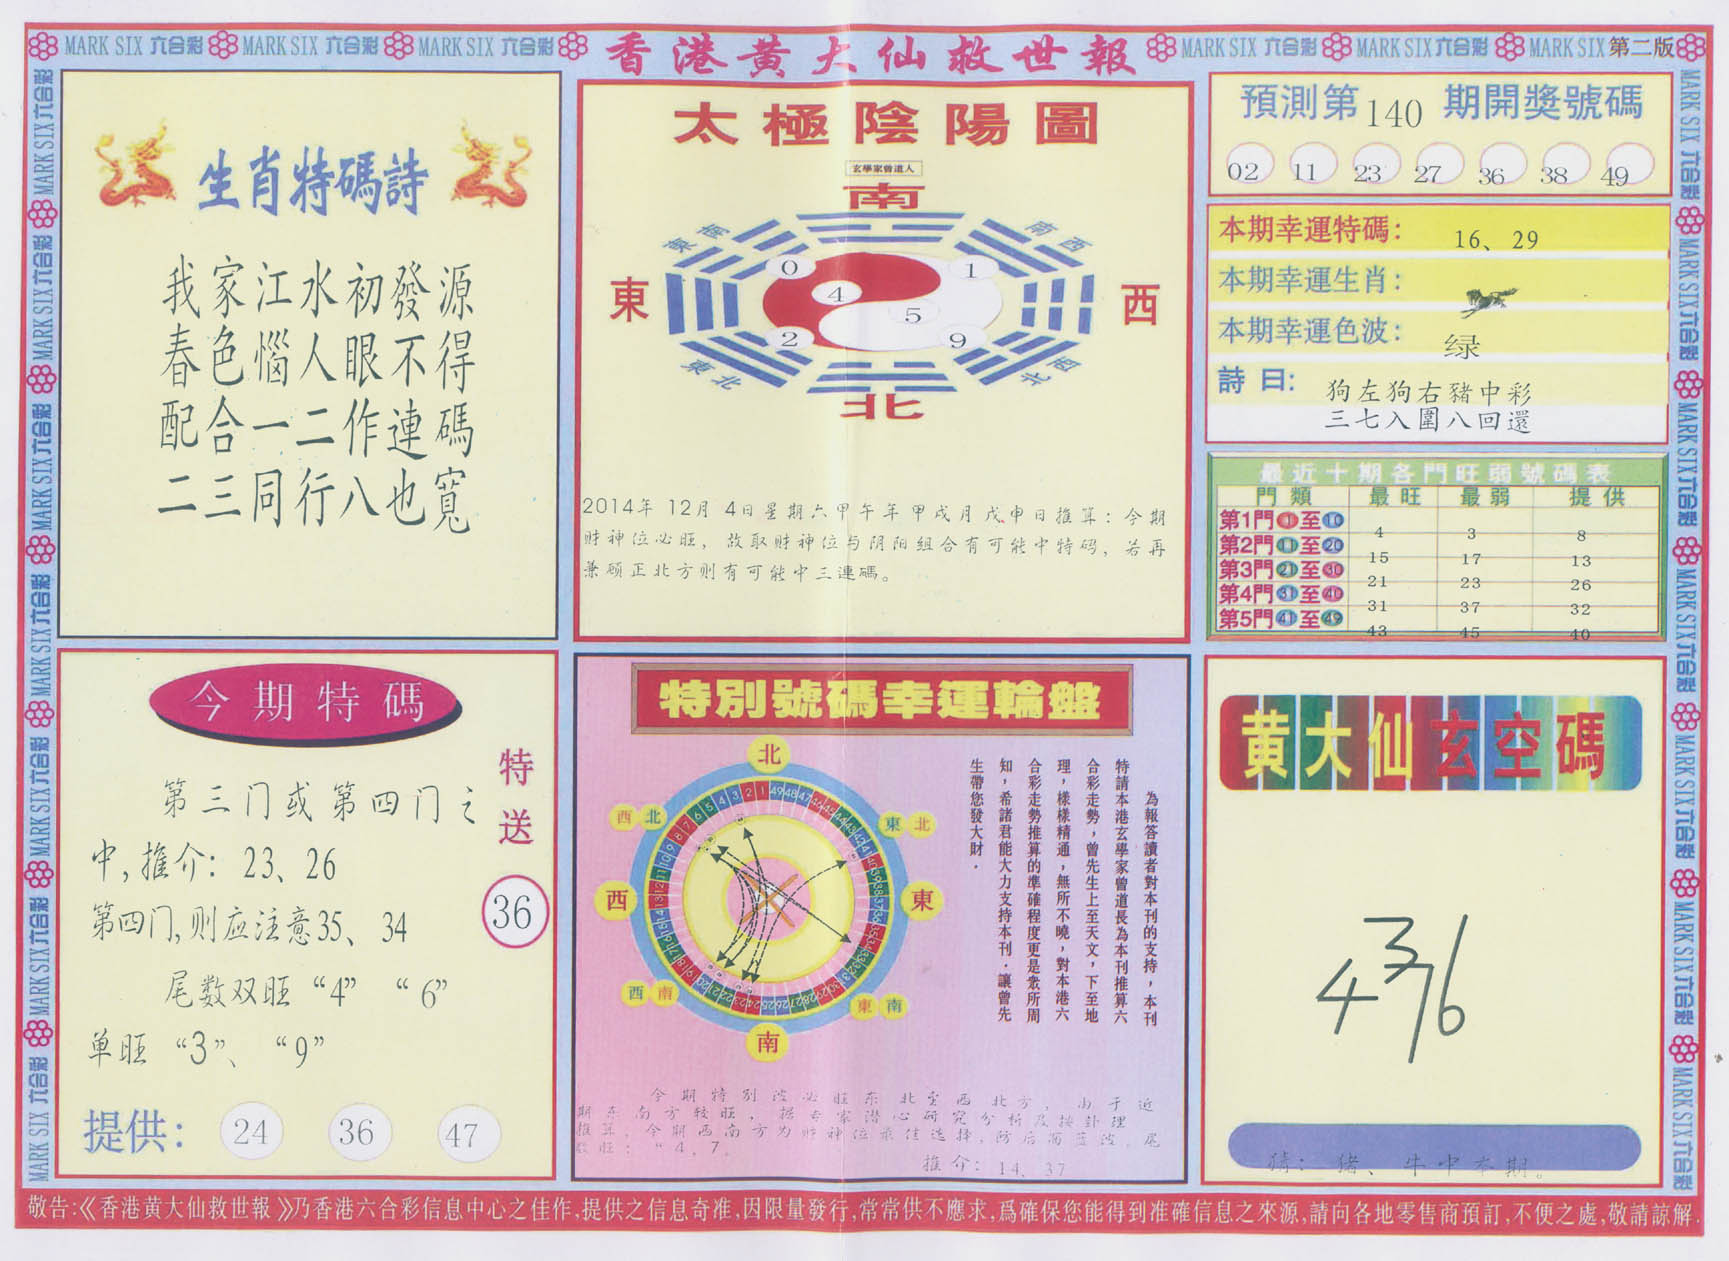 MARK SIX 六合彩 MARK SIX 六合彩 MARK SIX 六合彩 香港黄大仙救世報 MARK SIX 六合彩 MARK SIX 六合彩 MARK SIX 第二版
生肖特碼詩
我家江水初發源
春色惱人眼不得
配合一二作連碼
二三同行八也寬
太極陰陽圖
玄學家曾道人
南
東 西
北
東北
西南
西北
0 1
4
5
2 9
2014年 12月 4日星期六甲午年甲戌月戊申日推算：今期
财神位必旺，故取财神位与阴阳组合有可能中特码，若再
兼顾正北方则有可能中三連碼。
預測第140期開獎號碼
02 11 23 27 36 38 49
本期幸運特碼： 16、29
本期幸運生肖：
本期幸運色波： 绿
詩曰： 狗左狗右豬中彩
三七入圍八回還
最近十期各門旺弱號碼表
門類 最旺 最弱 提供
第1門 1 至 10 4 3 8
第2門 11 至 20 15 17 13
第3門 21 至 30 21 23 26
第4門 31 至 40 31 37 32
第5門 41 至 49 43 45 40
今期特碼
第三门或第四门之
中,推介：23、26
第四门,则应注意35、34
尾数双旺“4”“6”
单旺“3”、“9”
特送
36
提供： 24 36 47
特別號碼幸運輪盤
北
西北 東北
西 東
西南 東南
南
為報答讀者對本刊的支持，本刊
特請本港玄學家曾道長為本刊推算六
合彩走勢，曾先生上至天文，下至地
理，樣樣精通，無所不曉，對本港六
合彩走勢推算的準確程度更是衆所周
知，希諸君能大力支持本刊．讓曾先
生帶您發大財．
今期特别波必旺东北至西北方，由于近
期东南方较旺，据专家潜心研究分析及按卦理
推算，今期西南方为财神位最佳选择,防后面蓝波。尾
数旺：“4,7。
推介：14、37
黄大仙玄空碼
4376
猜：猪、牛中本期。
敬告:《香港黄大仙救世報》乃香港六合彩信息中心之佳作,提供之信息奇准,因限量發行,常常供不應求,爲確保您能得到准確信息之來源,請向各地零售商預訂,不便之處,敬請諒解.